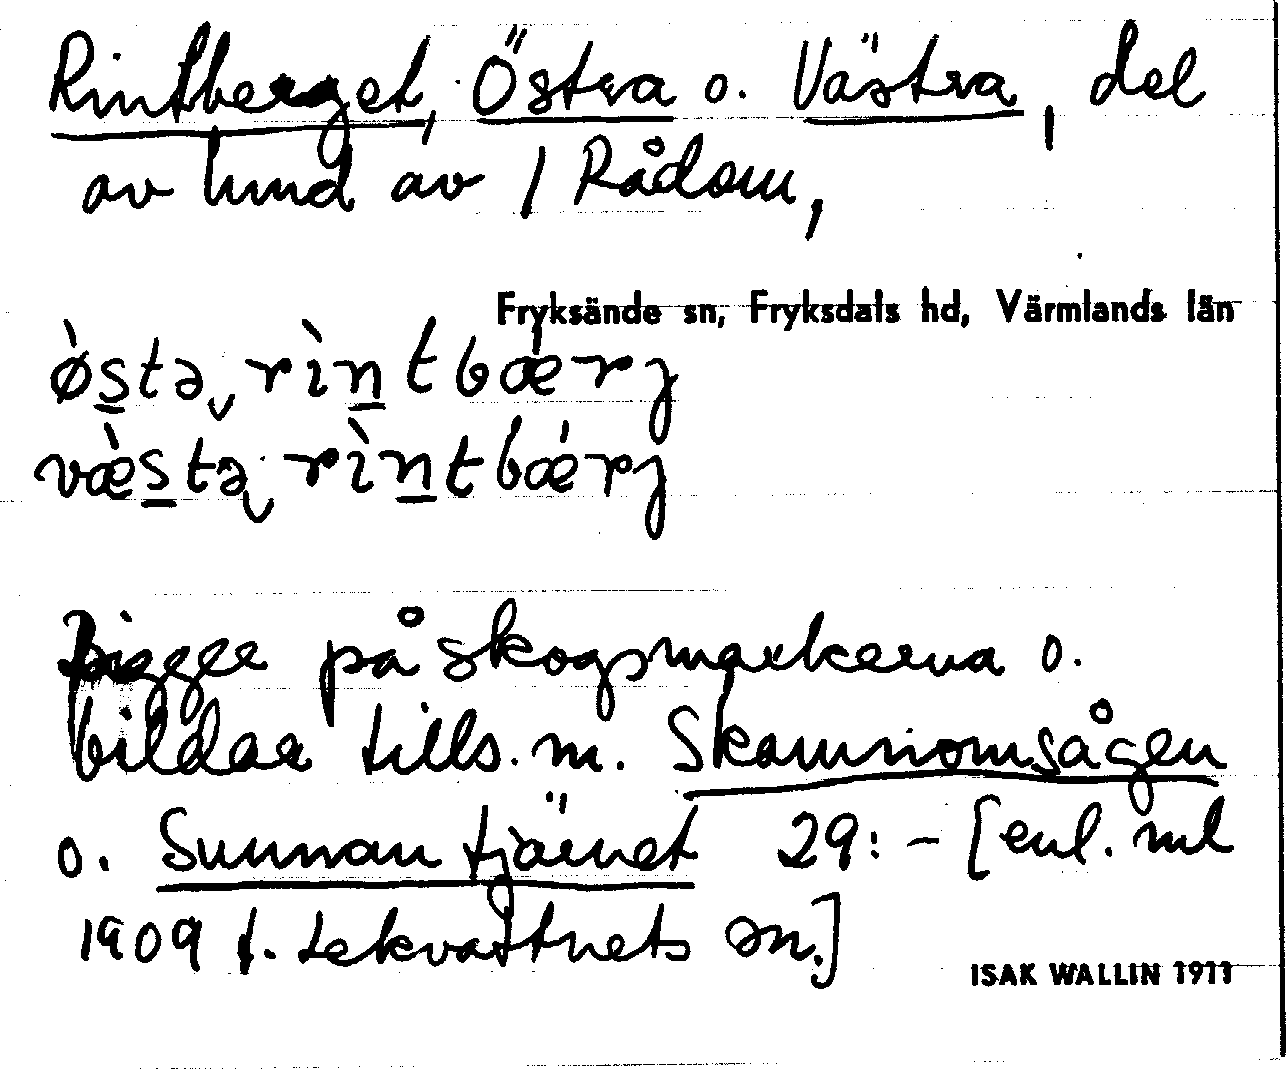 Rintberget, Östra o. Västra, del
av hmd av 1 Rådom,
Fryksände sn, Fryksdals hd, Värmlands län
ǿstə rìntbǽrj
væ̀stə rìntbǽrj
ligger på skogsmarkerna o.
bildar tills. m. Skamnomsågen
o. Sunnantjärnet 29:- [enl. ml
1909 f. Lekvattnets sn.]
ISAK WALLIN 1911